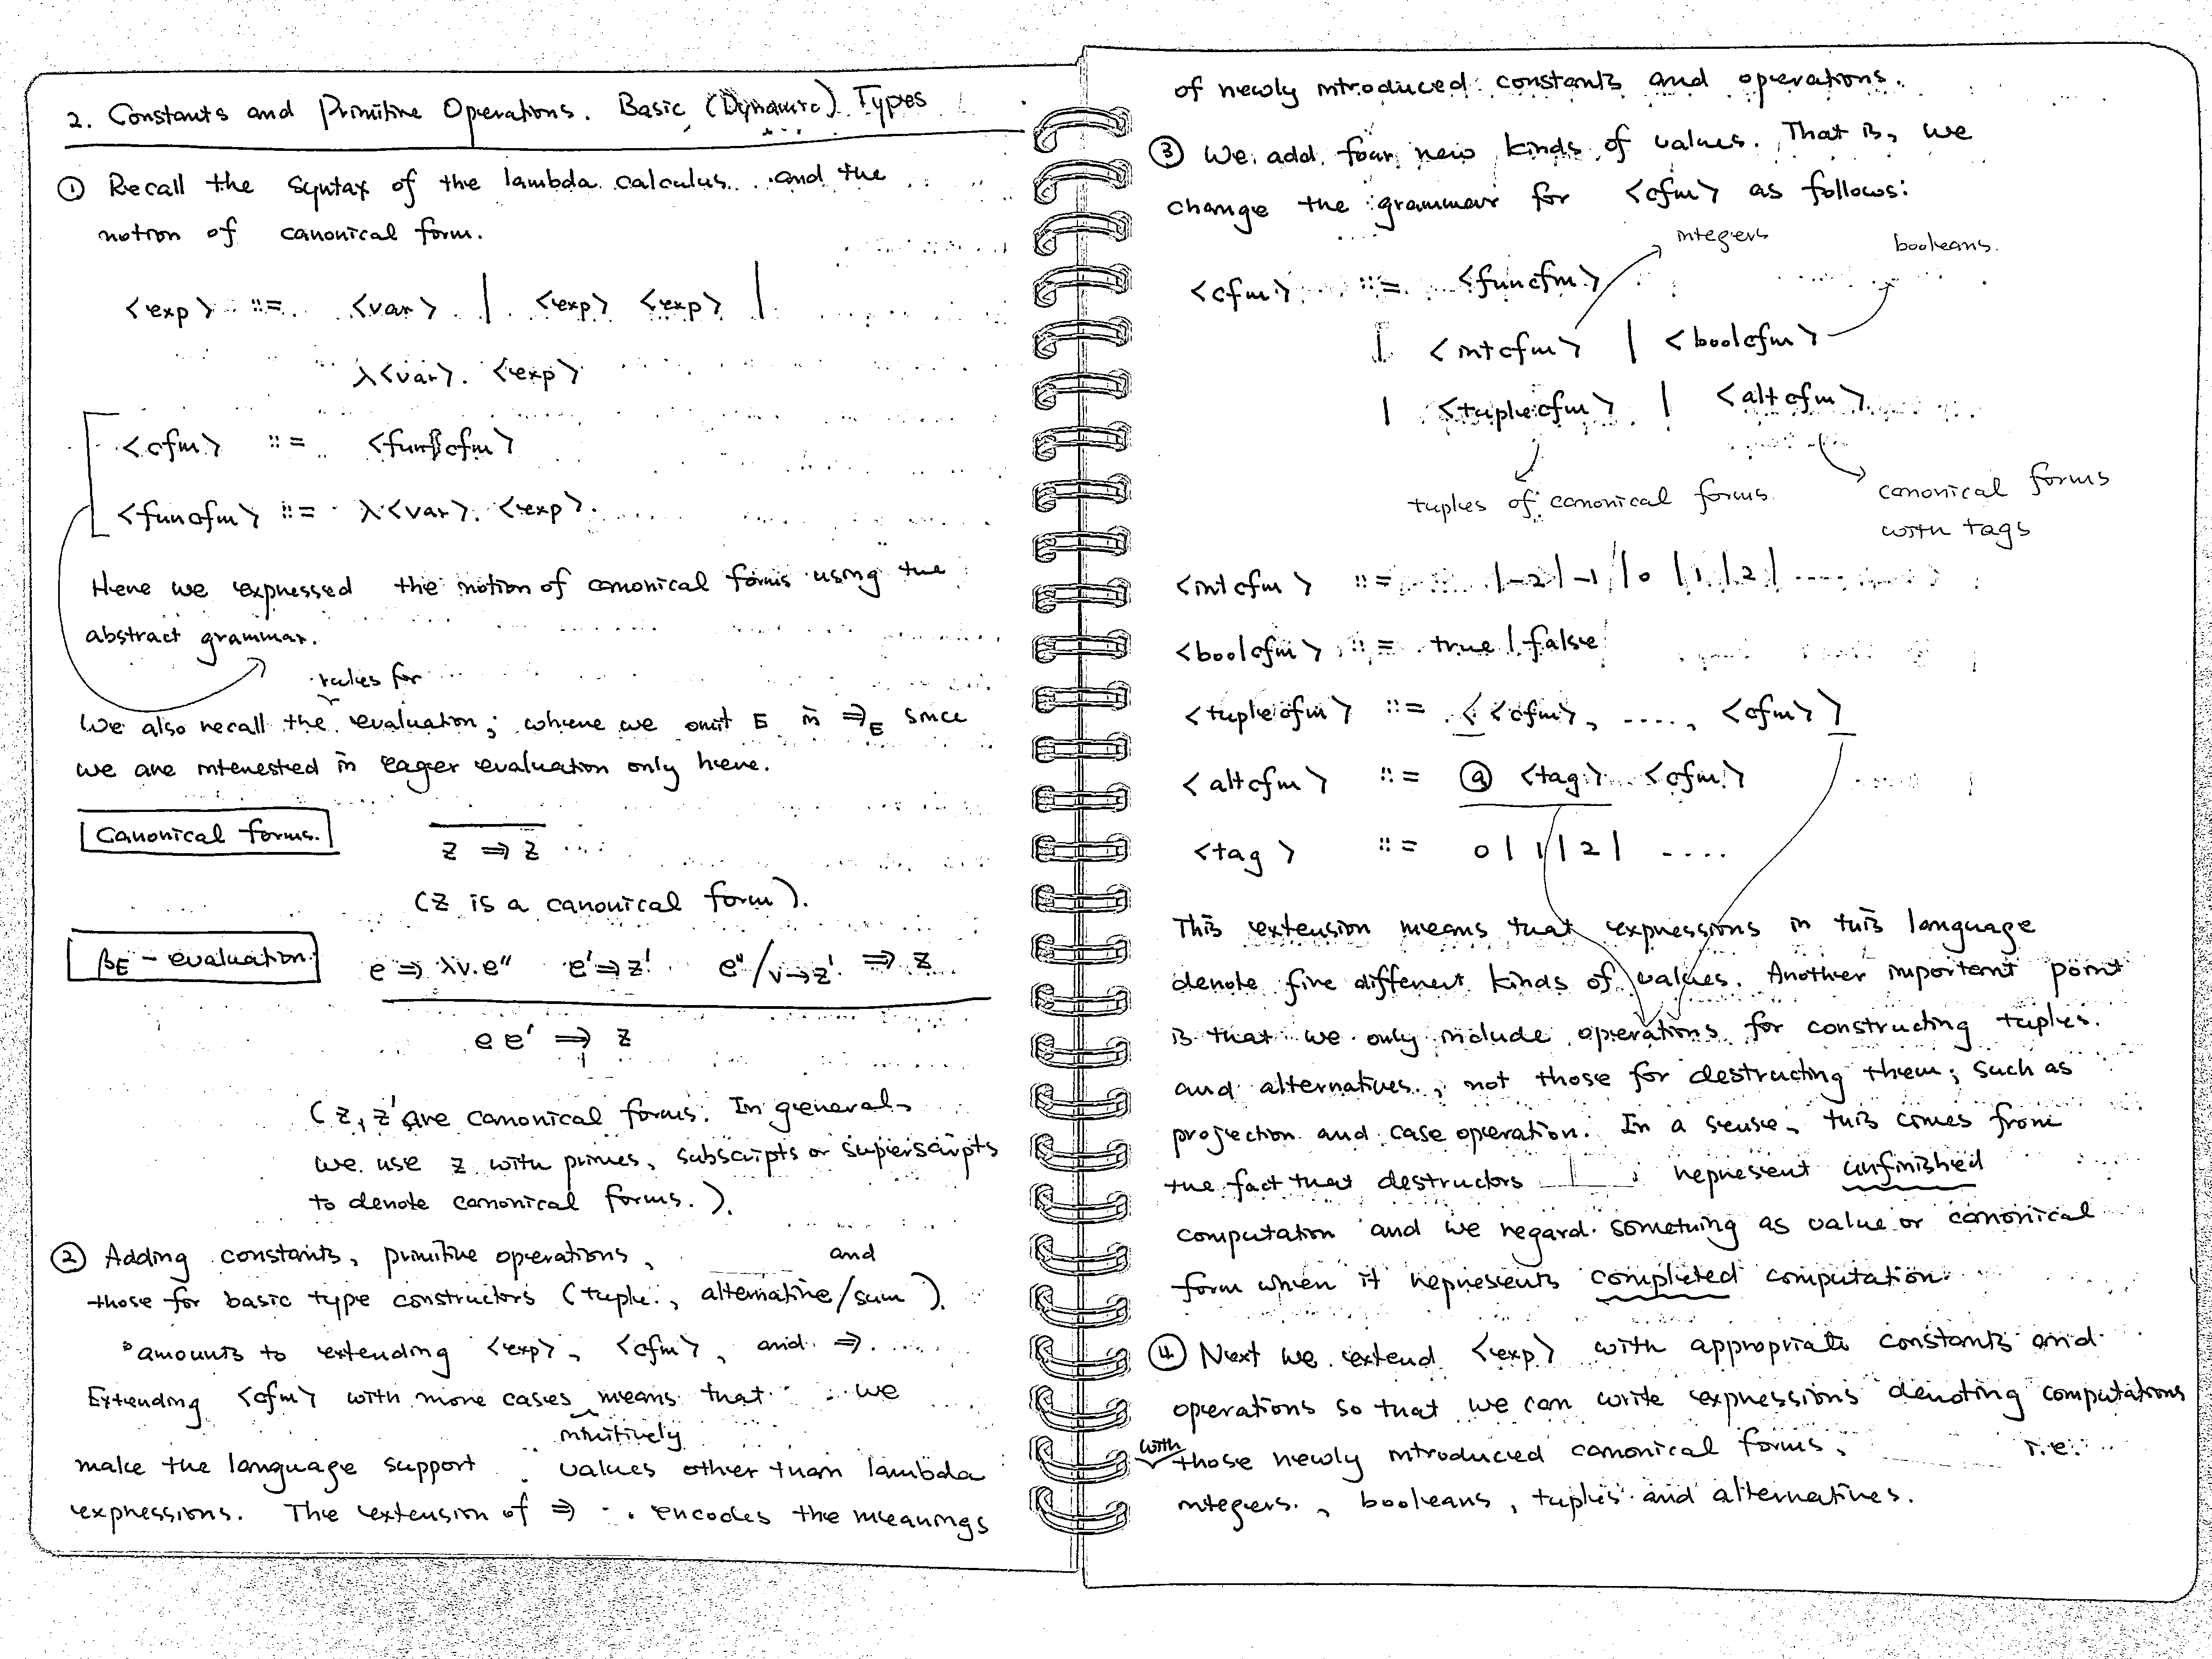 2. Constants and Primitive Operations. Basic (Dynamic) Types
① Recall the syntax of the lambda calculus and the
notion of canonical form.
<exp> ::= <var> | <exp> <exp> |
λ<var>. <exp>
<cfm> ::= <funcfm>
<funcfm> ::= λ<var>. <exp>.
Here we expressed the notion of canonical forms using the
abstract grammar.
rules for
We also recall the evaluation, where we omit E in ⇒E since
we are interested in eager evaluation only here.
Canonical forms.
z ⇒ z
(z is a canonical form).
βE - evaluation
e ⇒ λv.e'' e' ⇒ z' e''/v→z' ⇒ z
e e' ⇒ z
(z, z' are canonical forms. In general,
we use z with primes, subscripts or superscripts
to denote canonical forms.).
② Adding constants, primitive operations, and
those for basic type constructors (tuple, alternative/sum)
amounts to extending <exp>, <cfm>, and ⇒.
Extending <cfm> with more cases means that we
intuitively
make the language support values other than lambda
expressions. The extension of ⇒ encodes the meanings
of newly introduced constants and operations.
③ We add four new kinds of values. That is, we
change the grammar for <cfm> as follows:
integers
booleans.
<cfm> ::= <funcfm>
| <intcfm> | <boolcfm>
| <tuplecfm> | <altcfm>
tuples of canonical forms
canonical forms
with tags
<intcfm> ::= .... |-2|-1|0|1|2| ....
<boolcfm> ::= true | false
<tuplecfm> ::= < <cfm>, ...., <cfm> >
<altcfm> ::= @ <tag> <cfm>
<tag> ::= 0|1|2| ....
This extension means that expressions in this language
denote five different kinds of values. Another important point
is that we only include operations for constructing tuples
and alternatives, not those for destructing them, such as
projection and case operation. In a sense, this comes from
the fact that destructors represent unfinished
computation and we regard something as value or canonical
form when it represents completed computation.
④ Next we extend <exp> with appropriate constants and
operations so that we can write expressions denoting computations
with
those newly introduced canonical forms, i.e.
integers, booleans, tuples and alternatives.